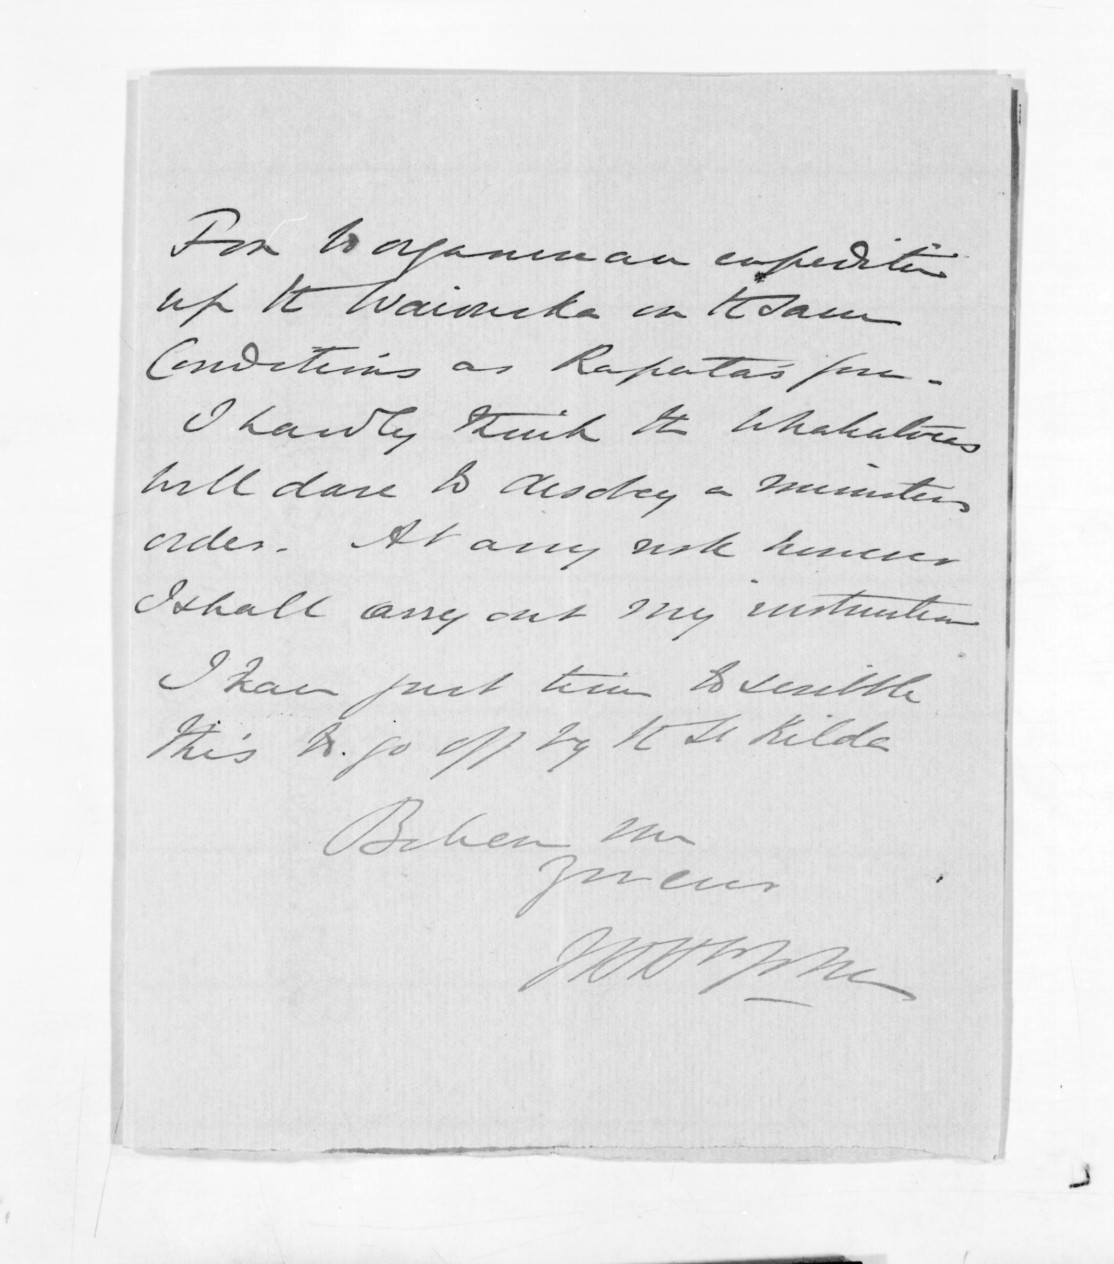 Fox to organise an expedition
up the Waioeka on the same
Conditions as Rapata's force.
I hardly think the Whakatores
will dare to disobey a ministers
order. At any risk however
I shall carry out my instruction
I have just time to scribble
this to go off by the St Kilda
Believe me
yours ever